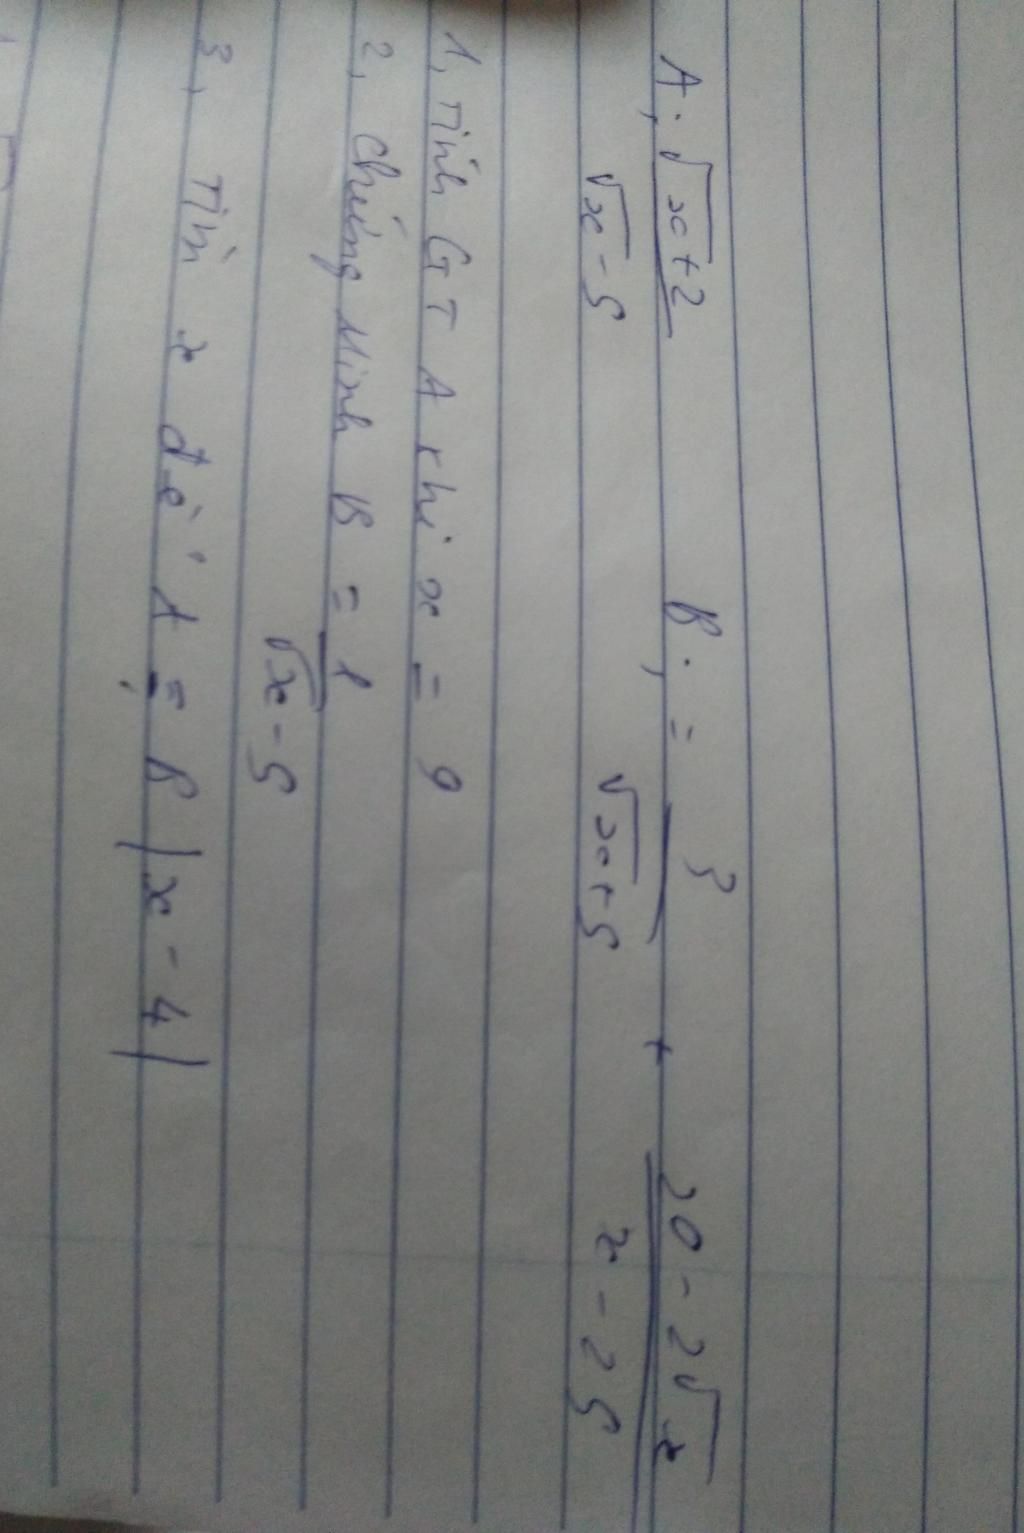 A, √x+2 / √x-5 B, = 3 / √x+5 + 20-2√x / x-25
1, Tính GT A khi x = 9
2, Chứng Minh B = 1 / √x-5
3, Tìm x để A = B |x-4|